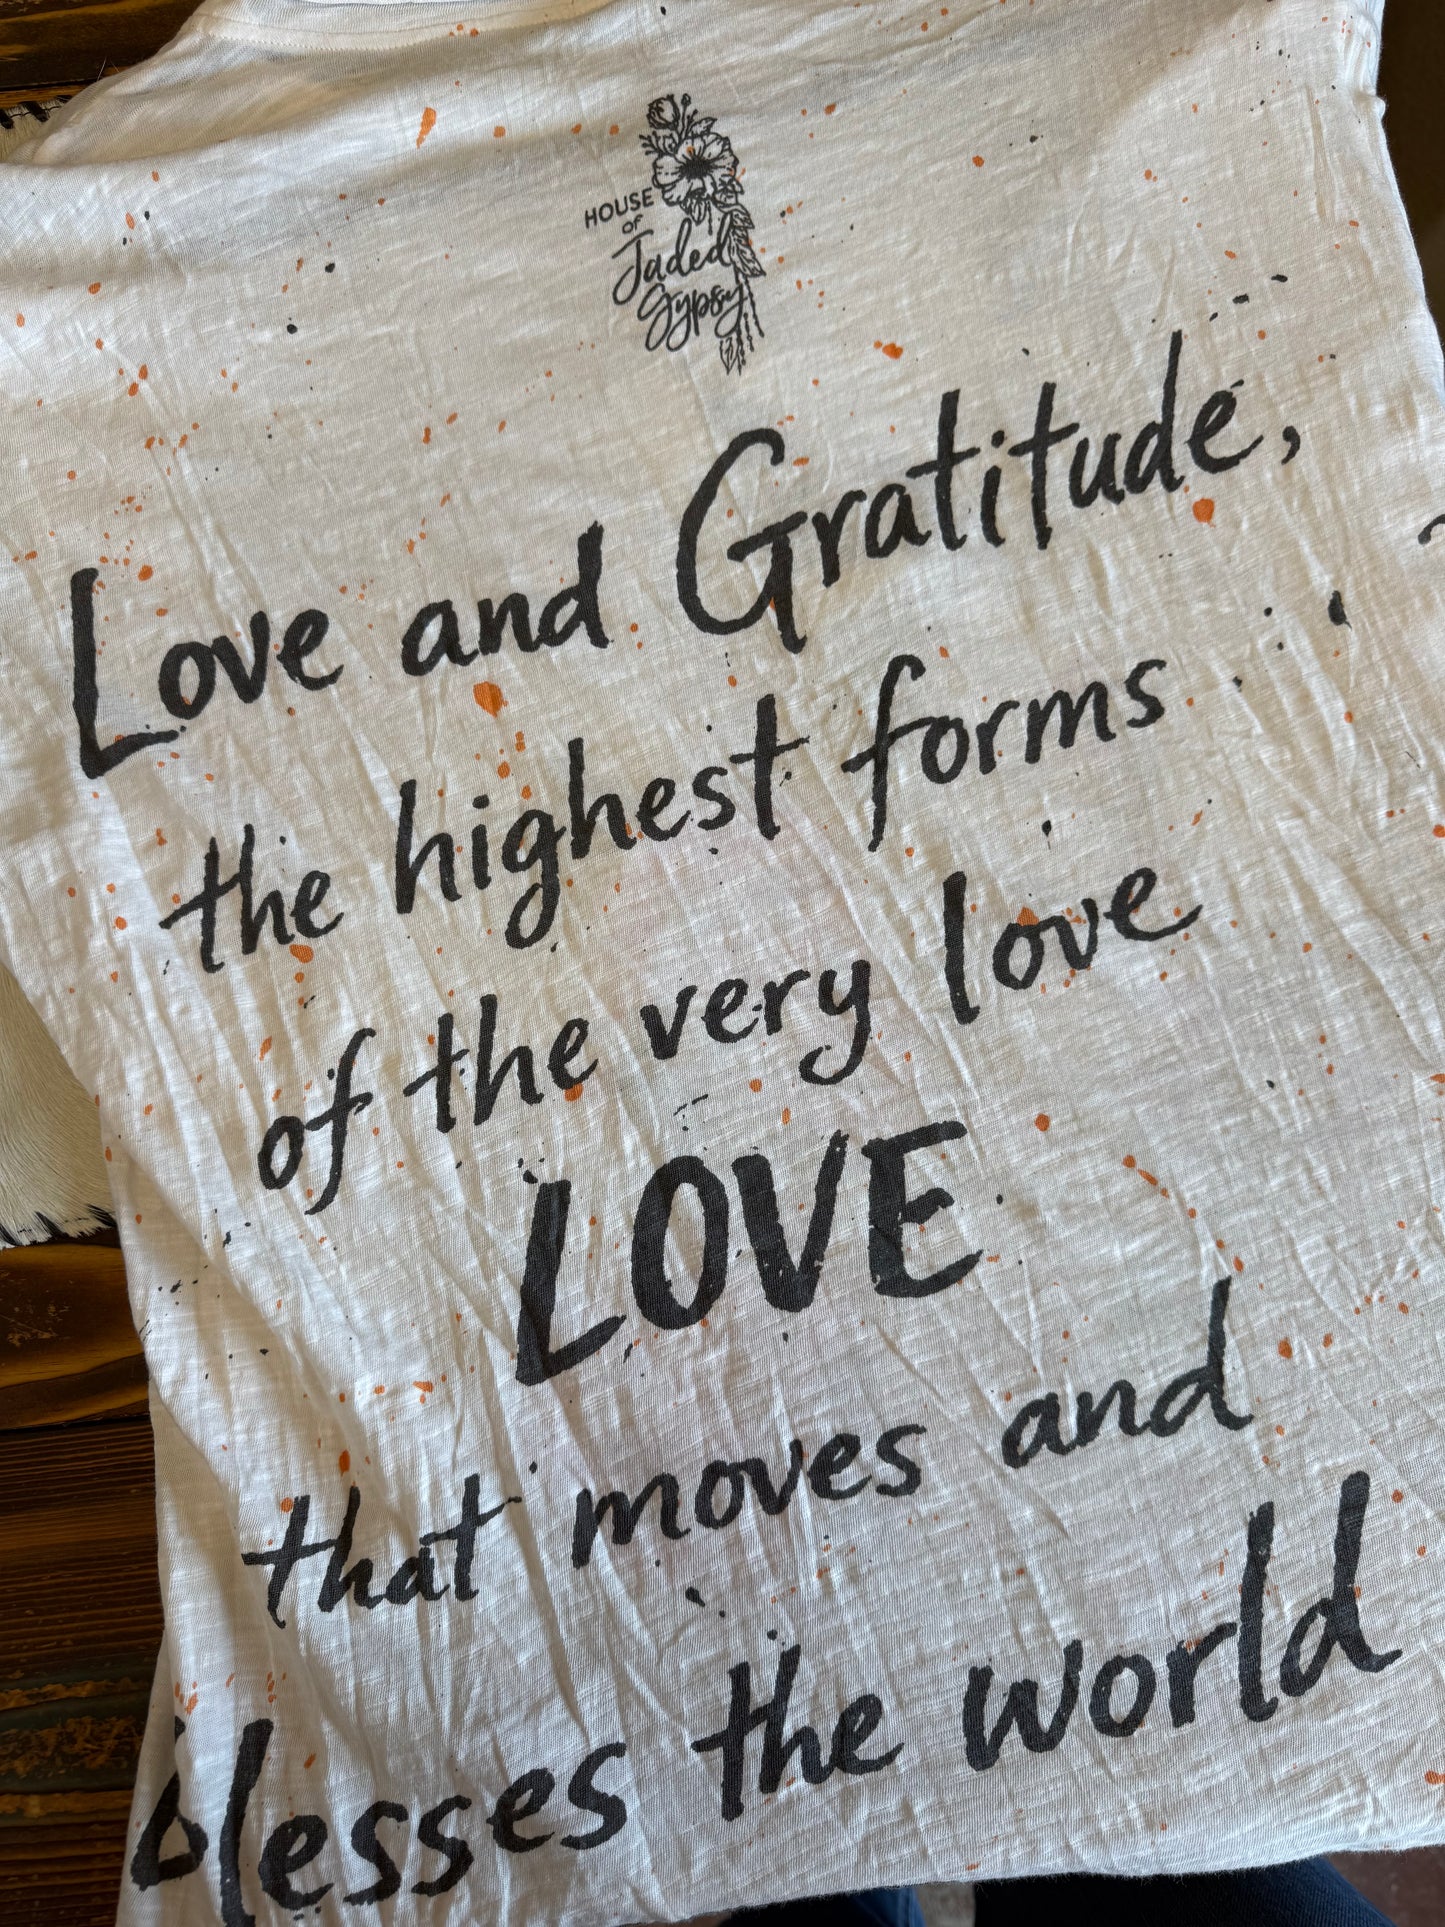 HOUSE
OF
Jaded
Gypsy
Love and Gratitude,
the highest forms
of the very love
LOVE
that moves and
blesses the world